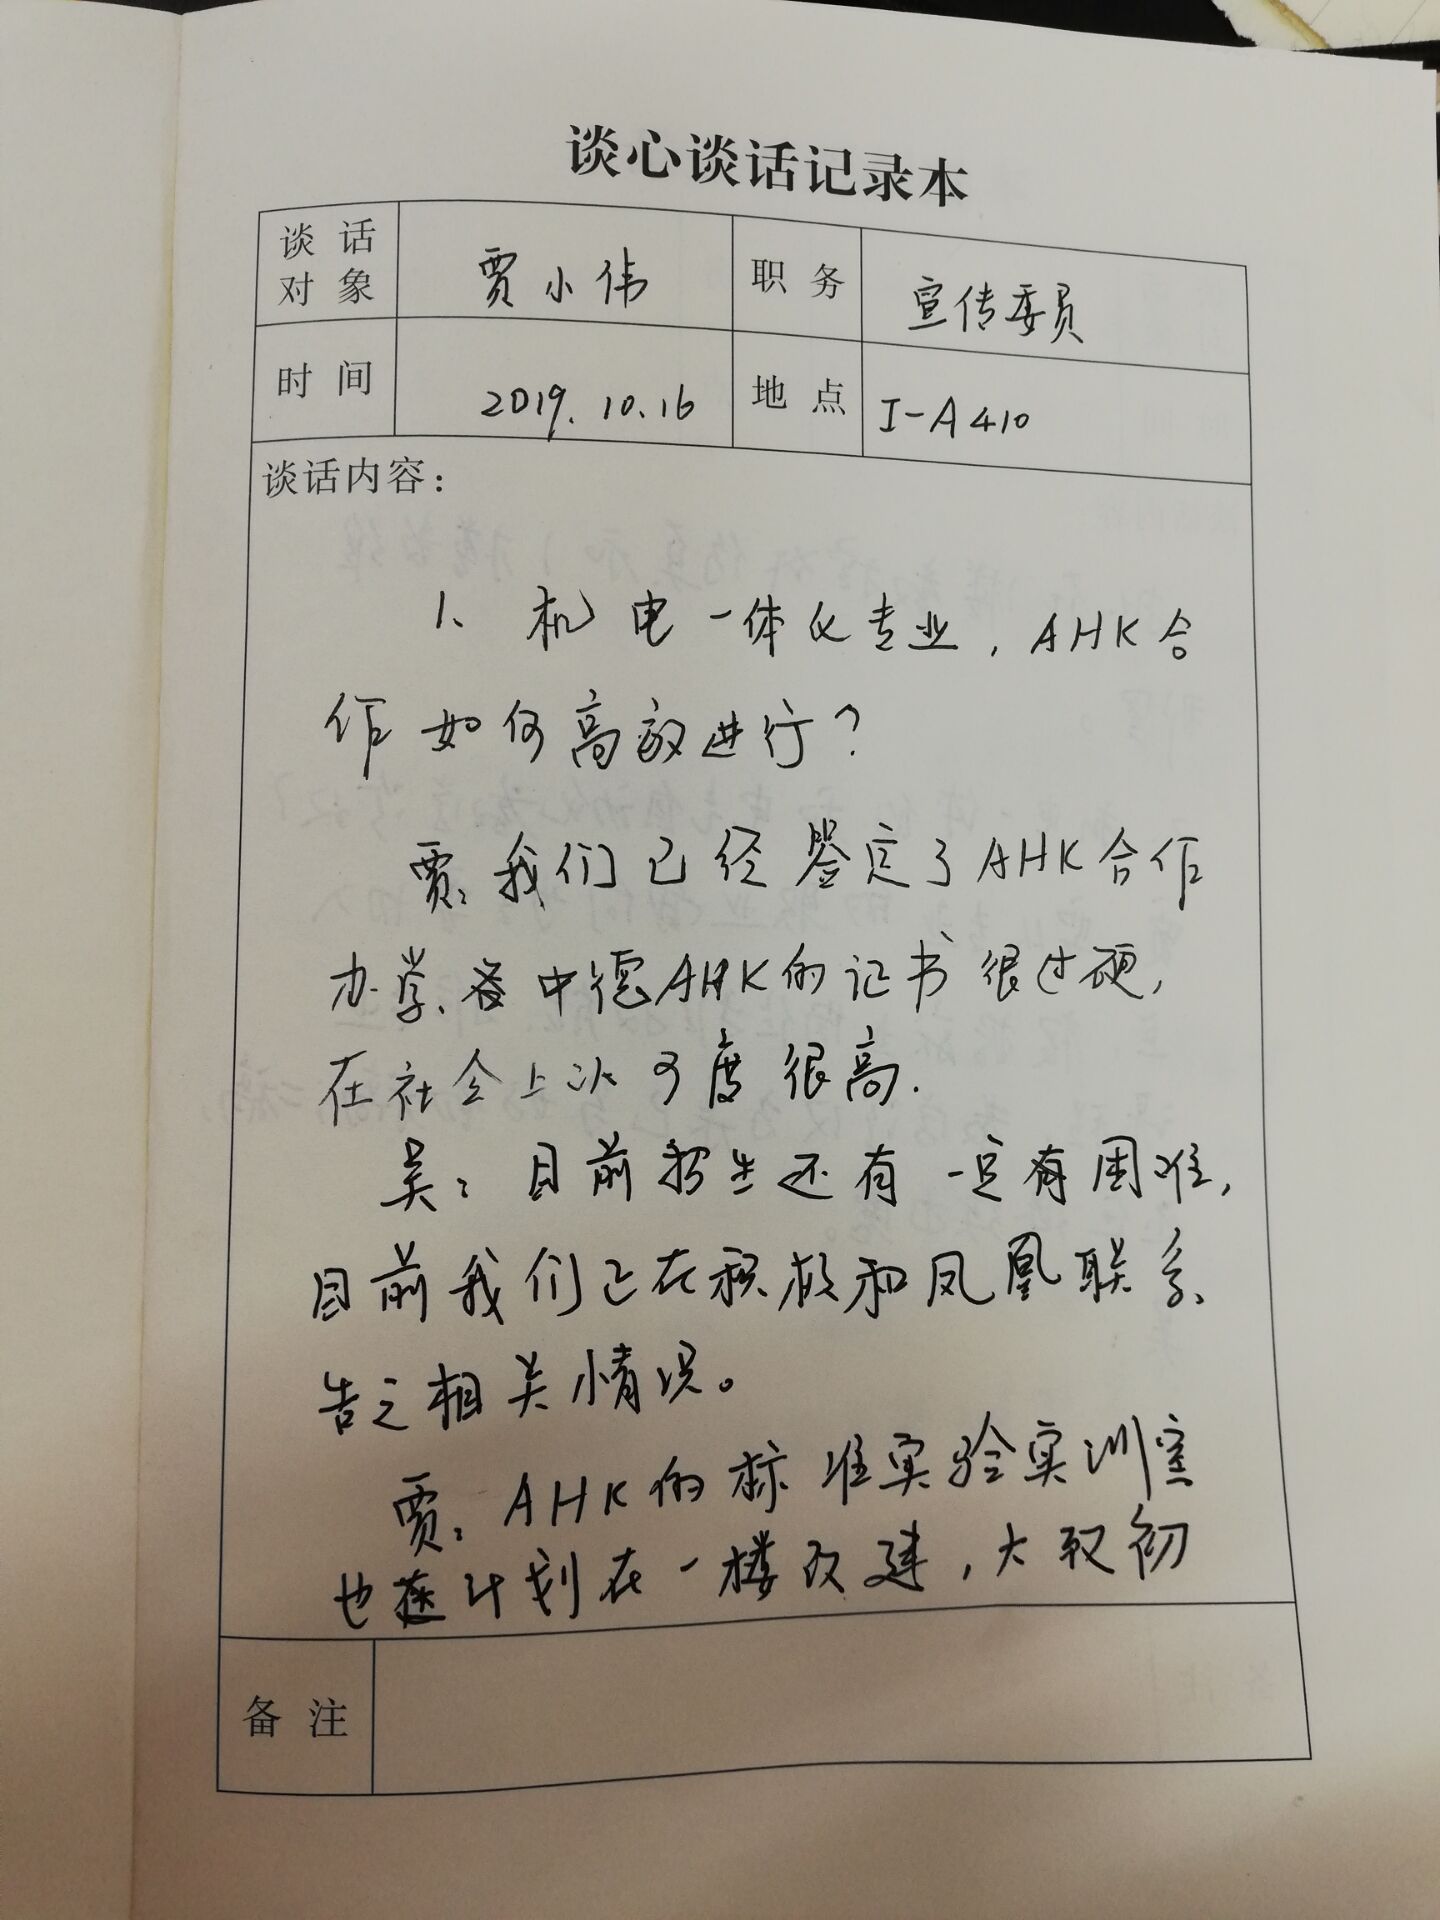 谈心谈话记录本
谈话对象 贾小伟 职务 宣传委员
时间 2019.10.16 地点 I-A410
谈话内容：
1、机电一体化专业，AHK合
作如何高效进行？
贾：我们已经鉴定了AHK合作
办学、中德AHK的证书很过硬，
在社会上认可度很高.
吴：目前招生还有一定有困难，
目前我们正在积极和凤凰联系、
告之相关情况。
贾：AHK的标准实验实训室
也计划在一楼改建，大致初
备注